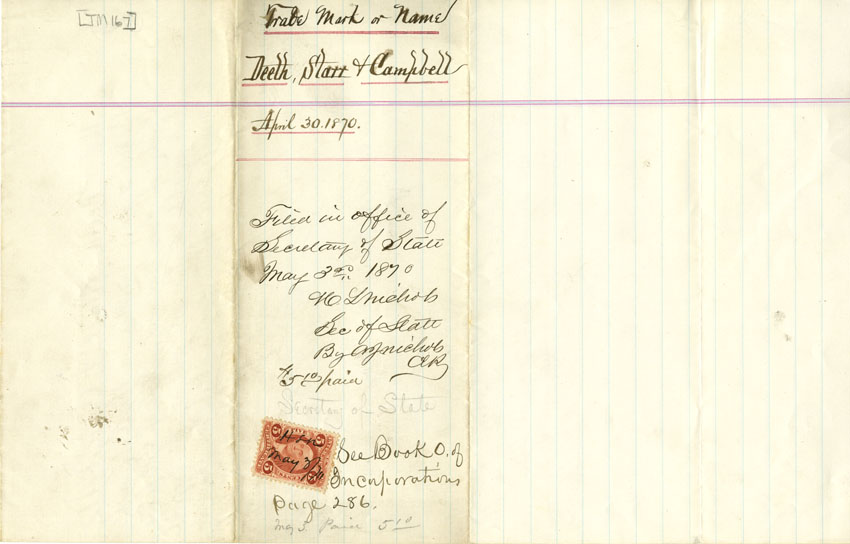 [TM167]
Trade Mark or Name
Deeth, Starr & Campbell
April 30. 1870.
Filed in office of
Secretary of State
May 3rd 1870
H L Nichols
Sec of State
By Nichols
Clk
$5 10 paid
Secretary of State
5 5
May 3/70
See Book O. of
Incorporations
Page 286.
May 3 Paid 5 10